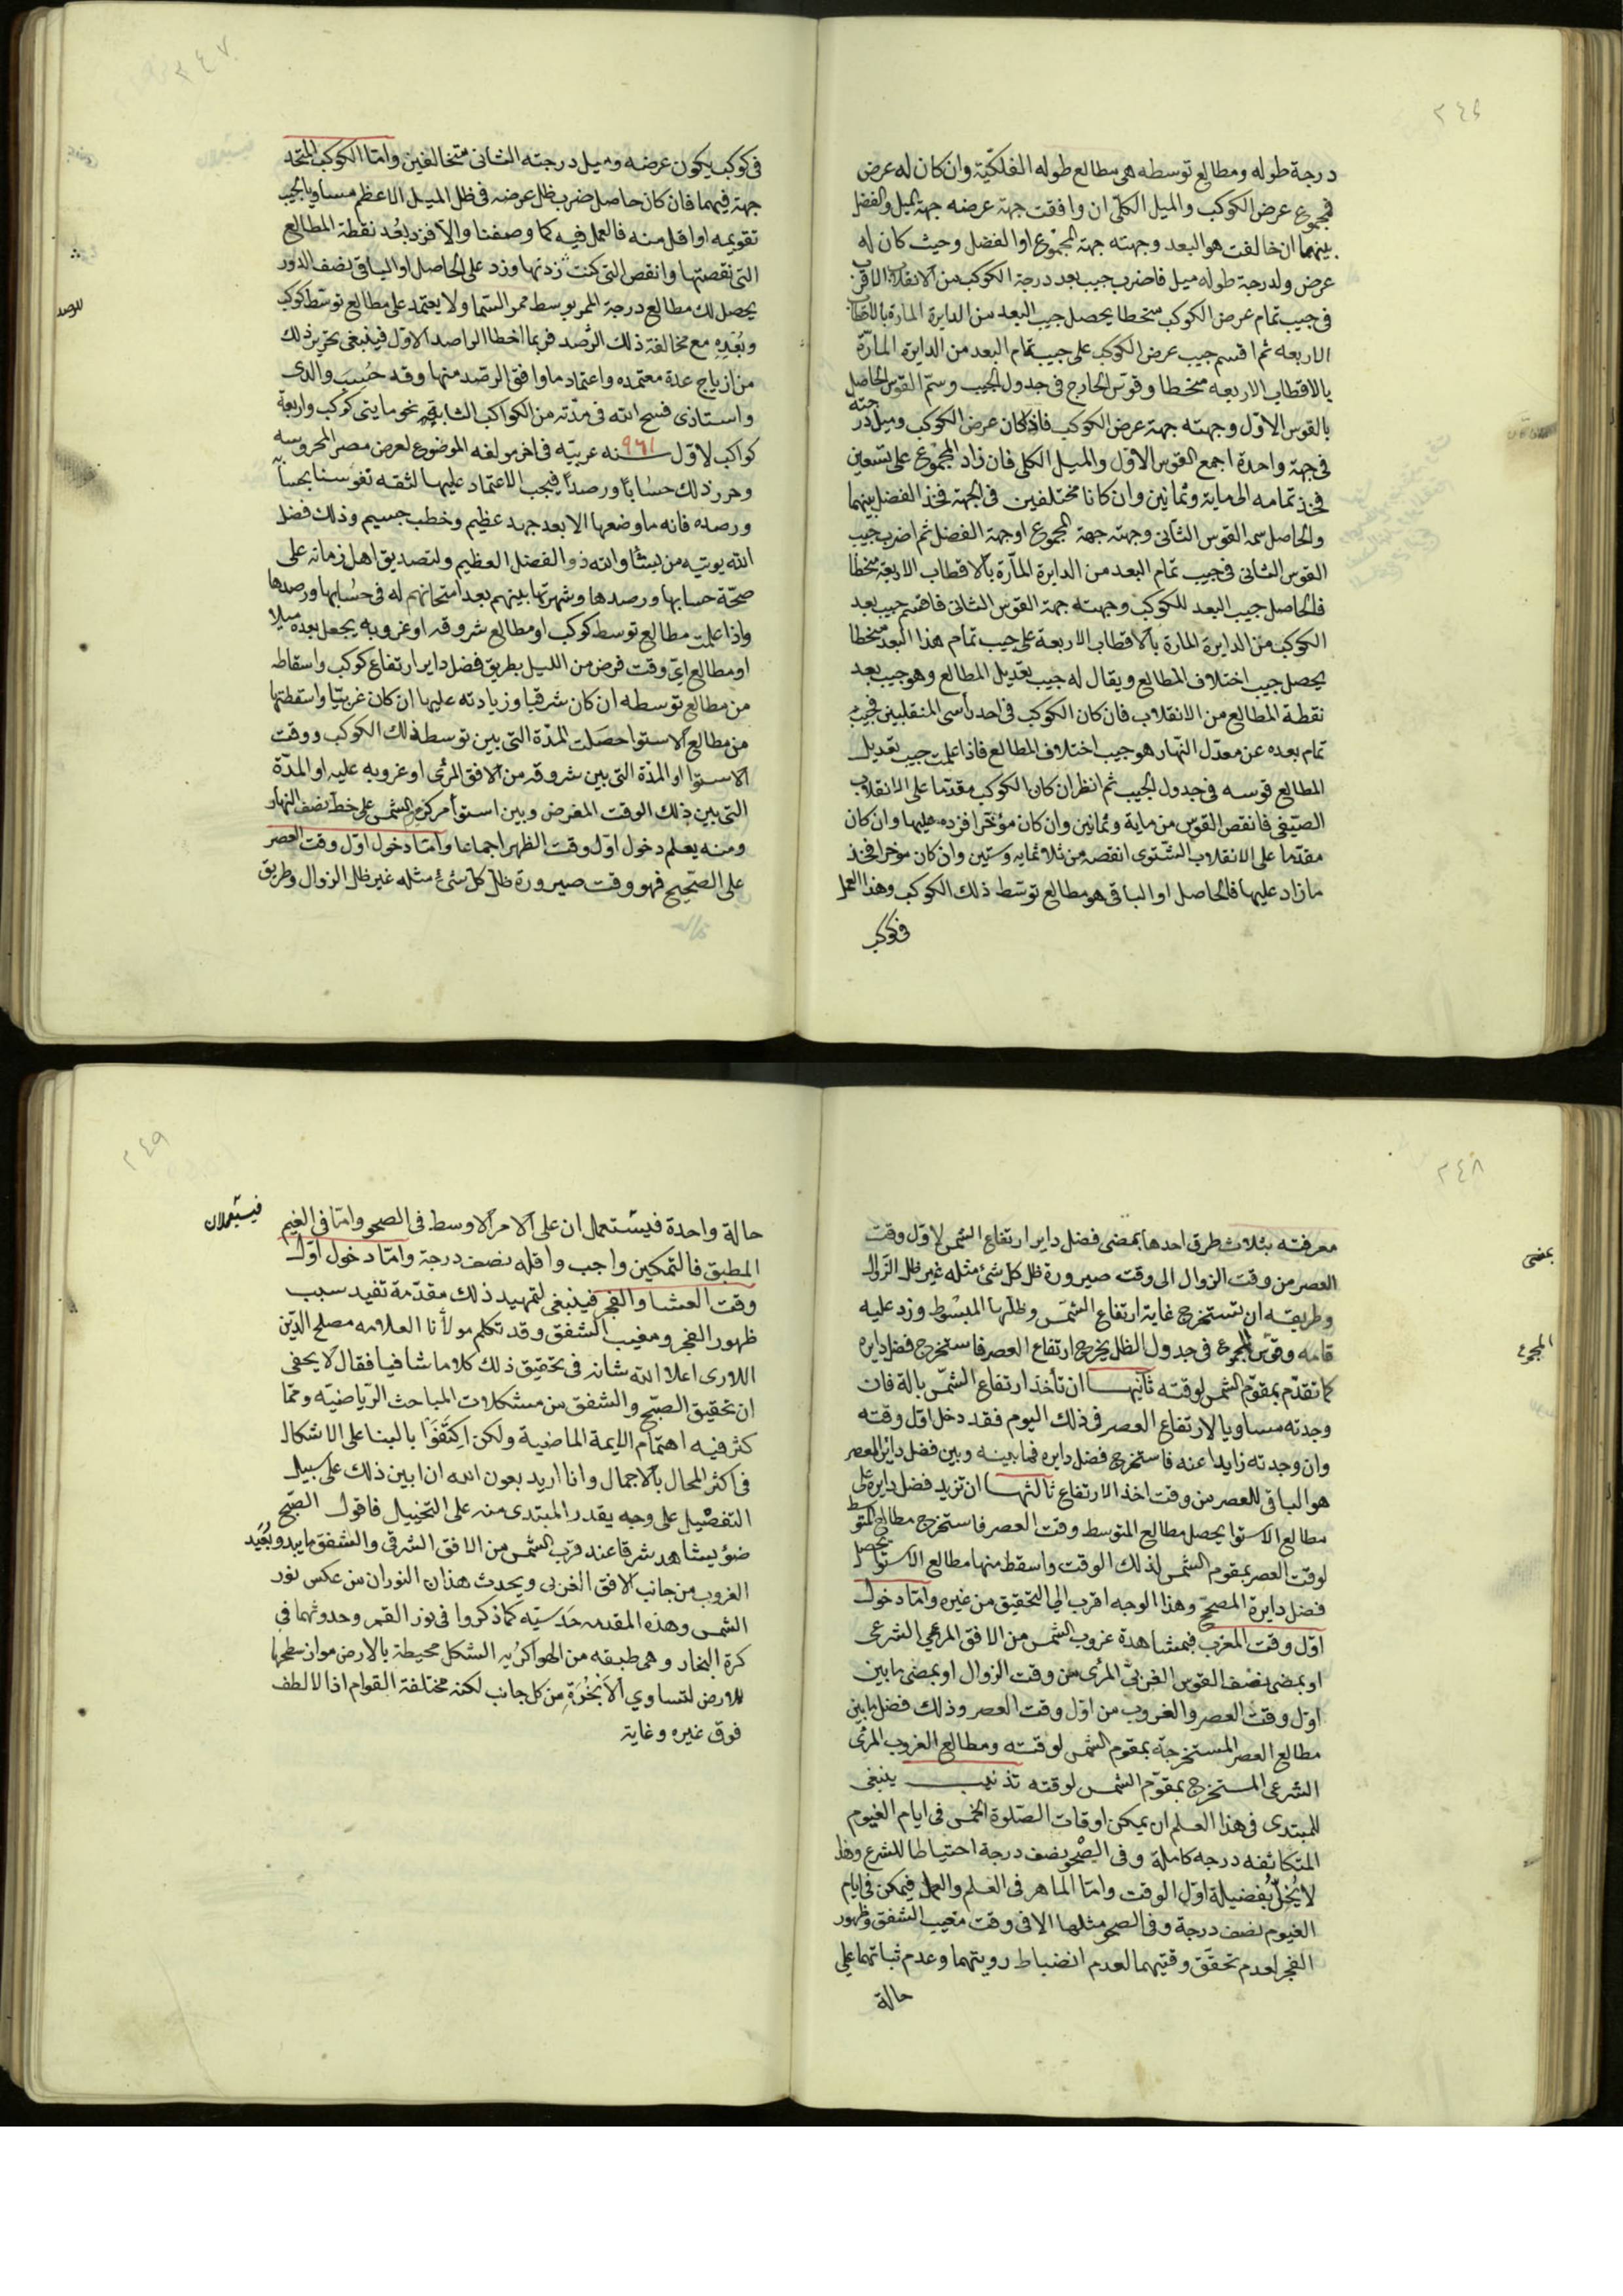 ٢٤٦
درجة طوله ومطالع توسطه هى مطالع طوله الفلكيّة وان كان له عرض
فمجموع عرض الكوكب والميل الكلّى ان وافقت جهة عرضه جهة الميل والفضل
بينهما ان خالفت هو البعد وجهته جهة المجموع او الفضل وحيث كان له
عرض ولدرجة طوله ميل فاضرب جيب بعد درجة الكوكب من الانقلاب الاقرب
فى جيب تمام عرض الكوكب منحطا يحصل جيب البعد من الدايرة المارة بالاقطاب
الاربعه ثم اقسم جيب عرض الكوكب على جيب تمام البعد من الدايرة المارّة
بالاقطاب الاربعه منحطا وقوّس الخارج فى جدول الجيب وسمّ القوس الحاصل
بالقوس الاوّل وجهته جهة عرض الكوكب فاذا كان عرض الكوكب وميل درجته
فى جهة واحدة اجمع القوس الاوّل والميل الكلى فان زاد المجموع على تسعين
فخذ تمامه الى ماية وثمانين وان كانا مختلفين فى الجهة فخذ الفضل بينهما
والحاصل سمه القوس الثانى وجهته جهة المجموع او جهة الفضل ثم اضرب جيب
القوس الثانى فى جيب تمام البعد من الدايرة المارّة بالاقطاب الاربعة منحطا
فالحاصل جيب البعد للكوكب وجهته جهة القوس الثانى فاقسم جيب بعد
الكوكب من الدايرة المارة بالاقطاب الاربعة على جيب تمام هذا البعد منحطا
يحصل جيب اختلاف المطالع ويقال له جيب تعديل المطالع وهو جيب بعد
نقطة المطالع من الانقلاب فان كان الكوكب فى احد رأسى المنقلبين فجيب
تمام بعده عن معدّل النهار هو جيب اختلاف المطالع فاذا علمت جيب تعديل
المطالع قوسه فى جدول الجيب ثم انظر ان كان الكوكب مقدّما على الانقلاب
الصيفى فانقص القوس من ماية وثمانين وان كان مؤخرا فزده عليها وان كان
مقدّما على الانقلاب الشتوى انقصه من ثلاثمايه وستين وان كان موخرا فخذ
ما زاد عليها فالحاصل او الباقى هو مطالع توسّط ذلك الكوكب وهذا العمل
فى كوكب
٢٤٧
فى كوكب يكون عرضه وميل درجته الثانى متخالفين وامّا الكوكب المتحد
جهة فيهما فان كان حاصل ضرب ظل عرضه فى ظل الميل الاعظم مساويا لجيب
تقويمه او اقل منه فالعمل فيه كما وصفنا والّا فزد بُعد نقطة المطالع
التى نقصتها وانقص التى كنت زدتها وزد على الحاصل او الباقى نصف الدور
يحصل لك مطالع درجة الممر بوسط ممر السّما ولا يعتمد على مطالع توسّط كوكب
وبُعْدِهِ مع مخالفة ذلك الرّصد فربما اخطا الراصد الاوّل فينبغى تحرير ذلك
من ازياج عدة معتمده واعتماد ما وافق الرصّد منها وقد حُسبَ والدى
واستاذى فسح الله فى مدّته من الكواكب الثابته نحو مايتى كوكب واربعة
كواكب لاوّل سنه ٩٦١ عربيّه فى اخر مولفه الموضوع لعرض مصر المحروسه
وحرر ذلك حسابا ورصداً فيجب الاعتماد عليها لثقه نفوسنا بحسابه
ورصده فانه ما وضعها الا بعد جهد عظيم وخطب جسيم وذلك فضل
الله يوتيه من يشا والله ذو الفضل العظيم ولتصديق اهل زمانه على
صحّة حسابها ورصدها وشهرتها بينهم بعد امتحانهم له فى حسابها ورصدها
واذا علمت مطالع توسط كوكب او مطالع شروقه او غروبه يجعل بعده ميلا
او مطالع اىّ وقت فرض من الليل بطريق فضل داير ارتفاع كوكب واسقاطه
من مطالع توسطه ان كان شرقيا وزيادته عليها ان كان غربيّا واسقطتها
من مطالع الاستوا حصَلت المدّة التى بين توسط ذلك الكوكب ووقت
الاستوا او المدّة التى بين شروقه من الافق المرئى او غروبه عليه او المدّة
التى بين ذلك الوقت المفرض وبين استوأ مركز الشمس على خط نصف النهار
ومنه يعلم دخول اوّل وقت الظهر اجماعا وامّا دخول اوّل وقت العصر
على الصّحيح فهو وقت صيرورة ظلّ كلّ شئ مثله غير ظل الزوال وطريق
للرصد
٢٤٨
معرفته بثلاث طرق احدها بمضى فضل داير ارتفاع الشمس لاوّل وقت
العصر من وقت الزوال الى وقت صيرورة ظل كل شئ مثله غير ظل الزّوال
وطريقه ان تستخرج غاية ارتفاع الشمس وظلّها المبسُوط وزد عليه
قامه وقوّس المجموع فى جدول الظل يخرج ارتفاع العصر فاستخرج فضل دايره
كما تقدّم بمقوّم الشمس لوقته ثانيها ان تأخذ ارتفاع الشمّس بالة فان
وجدته مساويا لارتفاع العصر فى ذلك اليوم فقد دخل اوّل وقته
وان وجدته زايدا عنه فاستخرج فضل دايره فما بينه وبين فضل داير العصر
هو الباقى للعصر من وقت اخذ الارتفاع ثالثها ان تزيد فضل دايره على
مطالع الاستوا يحصل مطالع المتوسط وقت العصر فاستخرج مطالع المتوسط
لوقت العصر بمقوم الشمس لذلك الوقت واسقط منها مطالع الاستوا يحصل
فضل دايرة المصحّح وهذا الوجه اقرب الى التحقيق من غيره وامّا دخول
اوّل وقت المغرب فبمشاهدة غروب الشمس من الافق المرءى الشرعى
او بمضى نصْف القوس الغربىّ المرئى من وقت الزوال او بمضى ما بين
اوّل وقت العصر والغروب من اوّل وقت العصر وذلك فضل ما بين
مطالع العصر المستخرجة بمقوم الشمس لوقته ومطالع الغروب المرئى
الشرعى المستخرج بمقوّم الشمس لوقته تذنيب ينبغى
للمبتدى فى هذا العلم ان يمكن اوقات الصّلوة الخمس فى ايام الغيوم
المتكاثفه درجه كاملة وفى الصّحو نصف درجة احتياطا للشرع وهذا
لا يُخلّ بُفضيلة اوّل الوقت وامّا الماهر فى العلم والعمل فيمكن فى ايام
الغيوم نصف درجة وفى الصحو مثلها الا فى وقت مغيب الشفق وظهور
الفجر لعدم تحقّق وقتيهما لعدم انضباط رويتهما وعدم ثباتهما على
حالة
بمضى
المجموع
٢٤٩
حالة واحدة فيستعملان على الامر الاوسط فى الصحو وامّا فى الغيم
فيستعملان
المطبق فالتمكين واجب واقله نصف درجة وامّا دخول اوّل
وقت العشا والفجر فينبغى لتمهيد ذلك مقدّمة تفيد سبب
ظهور الفجر ومغيب الشفق وقد تكلم مولأنا العلامه مصلح الدّين
اللارى اعلا الله شانه فى تحقيق ذلك كلاما شافيا فقال لا يخفى
ان تحقيق الصبّح والشفق من مشكلات المباحث الرّياضيّه وممّا
كثر فيه اهتمام الايمة الماضية ولكن اكتَفَوْا بالبنا على الاشكال
فى اكثر المحال بالاجمال وانا اريد بعون الله ان ابين ذلك على سبيل
التفصْيل على وجه يقدر المبتدى منه على التخييل فاقول الصّبح
ضؤ يشاهد شرقا عند قرب الشمس من الافق الشرقى والشفق ما يبدو بُعَيْد
الغروب من جانب الافق الغربى ويحدث هذان النوران من عكس نور
الشمس وهذه المقدمه حَدَسيّه كما ذكروا فى نور القمر وحدوثهما فى
كرة البخار وهى طبقه من الهوا كريه الشكل محيطة بالارض مواز سطحها
للارض لتساوي الابْخُرَةِ من كل جانب لكنه مختلفة القوام اذ الالطف
فوق غيره وغاية